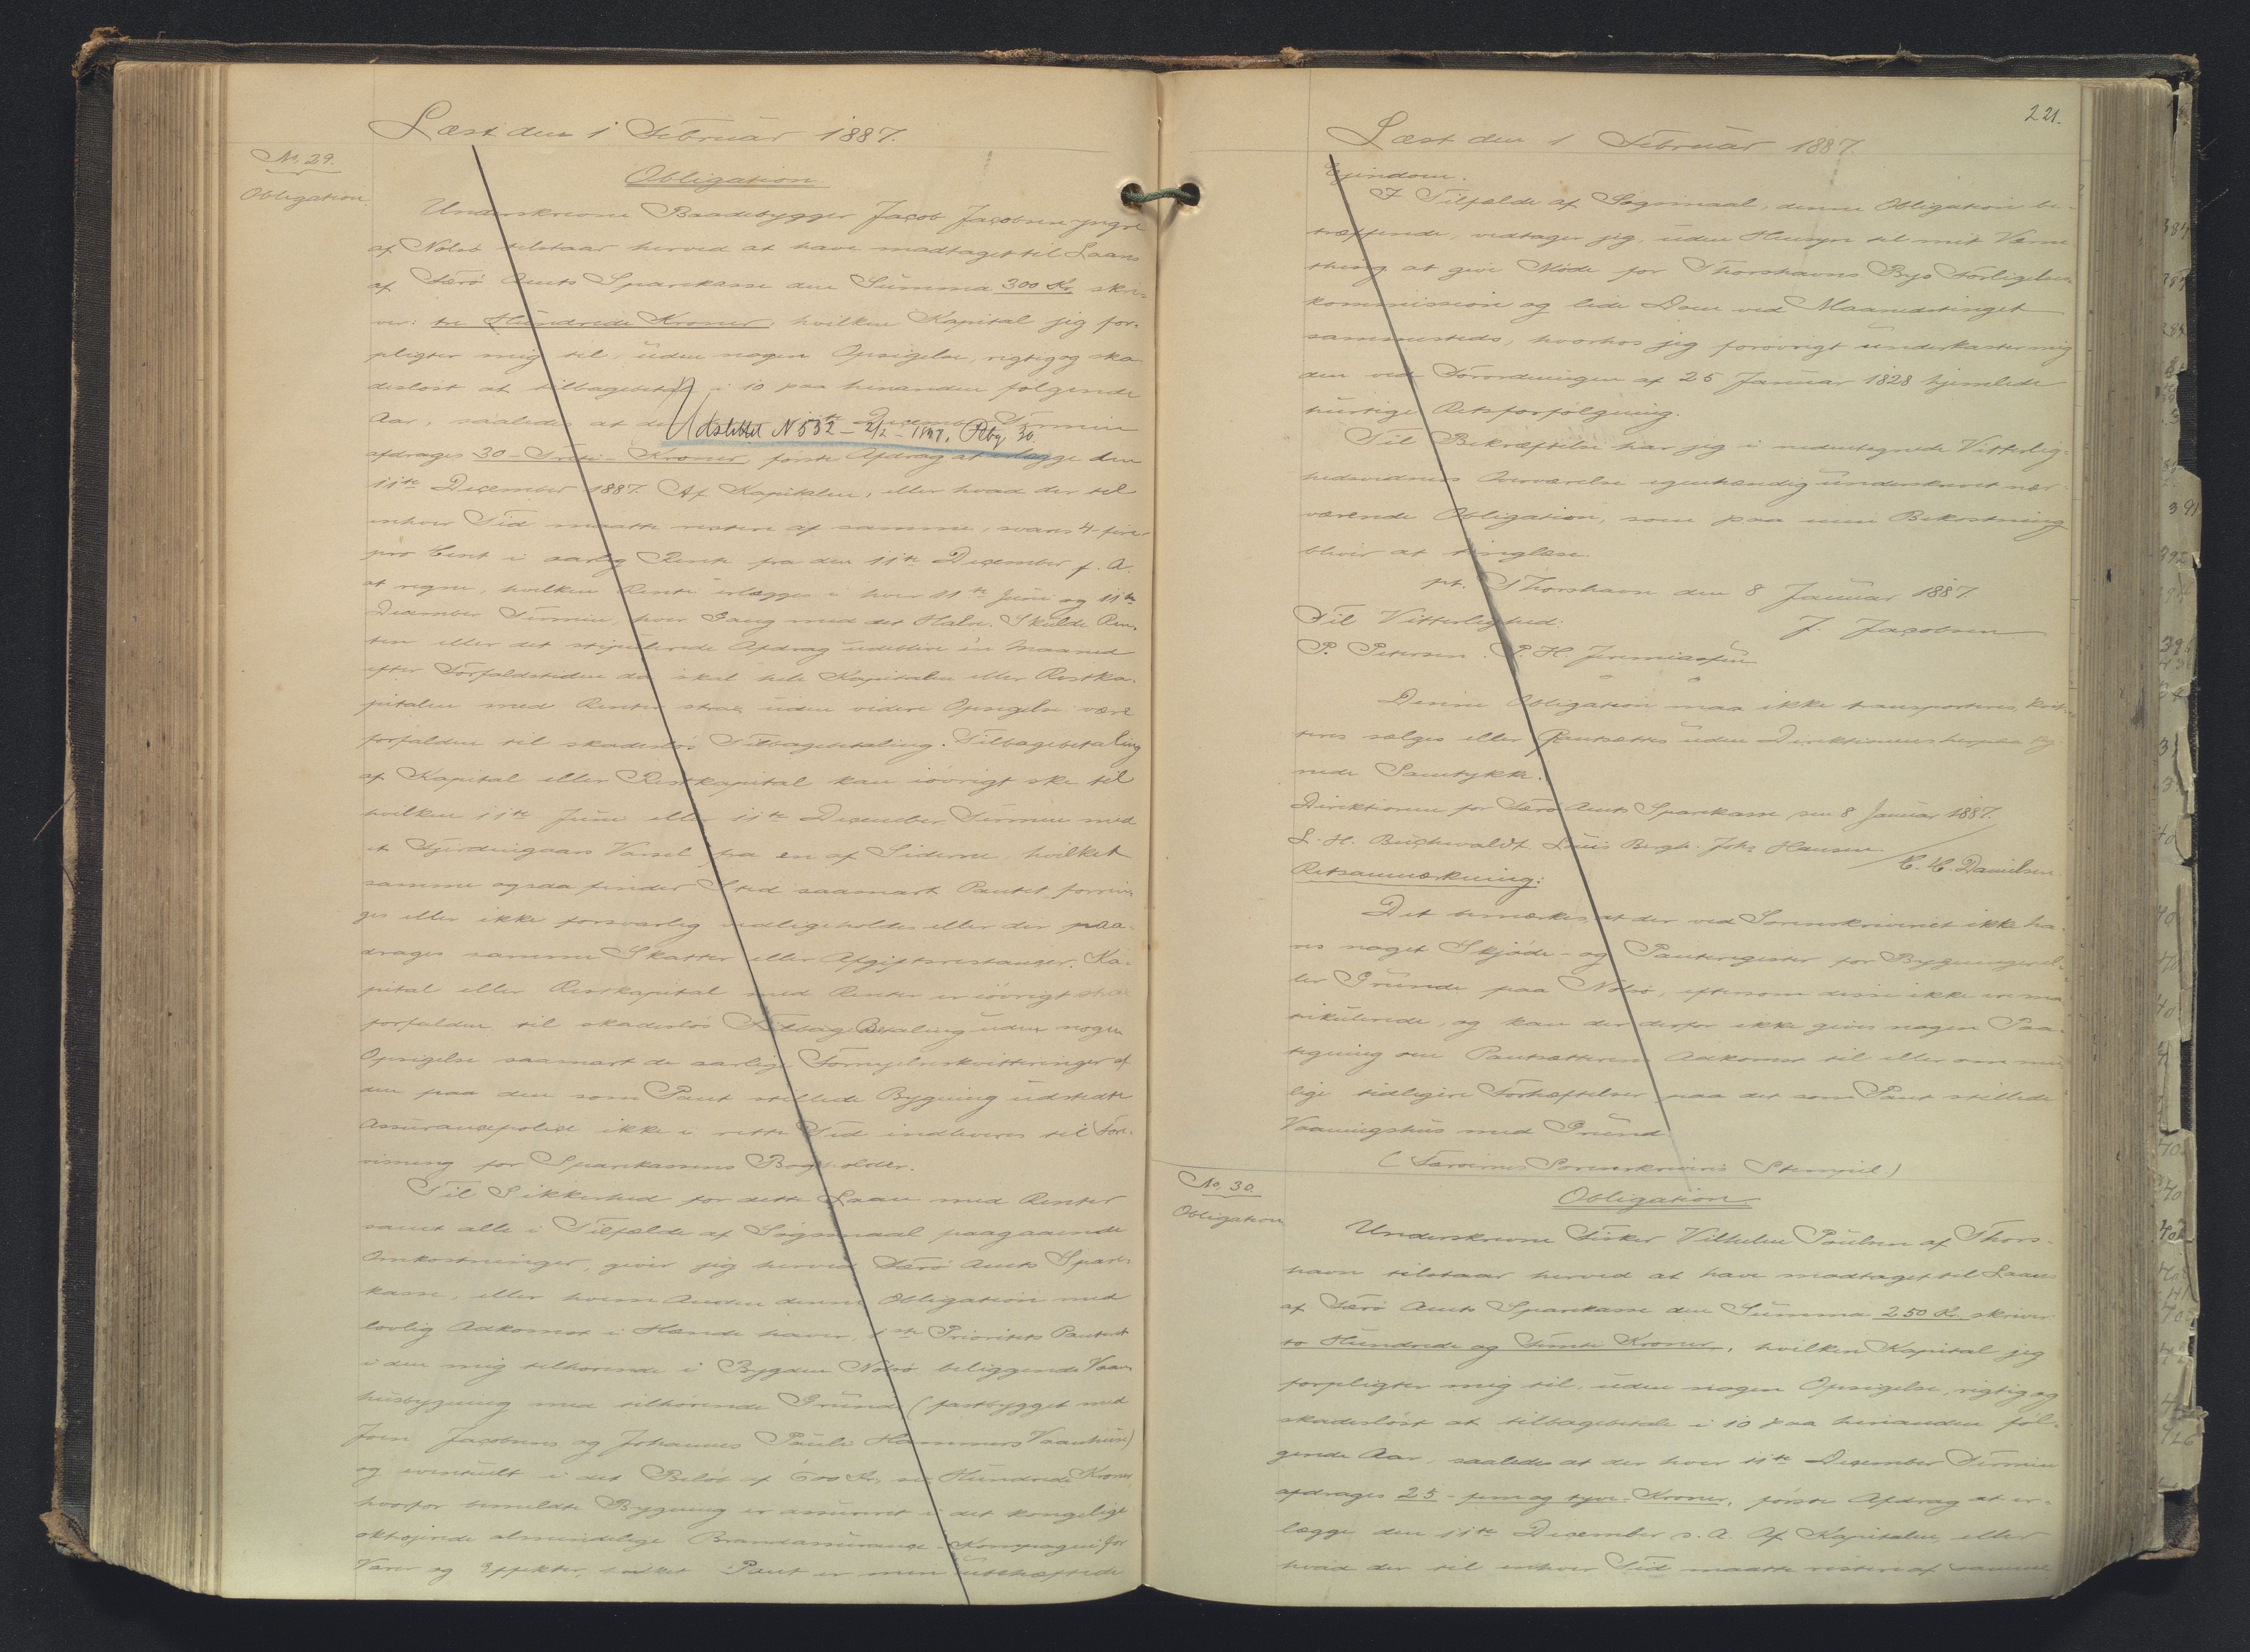 Læst den 1 Februar 1887.
No. 29.
Obligation.
Obligation
Underskrevne Baadebygger Jacob Jacobsen yngre
af Nolsö tilstaar herved at have modtaget til Laans
af Færö Amts Sparekasse den Summa 300 Kr. skri-
ver: tre Hundrede Kroner, hvilken Kapital jeg for-
pligter mig til, uden nogen Opsigelse, rigtig og ska-
deslöst at tilbagebetale i 10 paa hinanden fölgende
Aar, saaledes at der 11te December Termin
Udslettet N 532 - 2/2 - 1897. Pbg. 30.
afdrages 30 - Treti - Kroner, förste Afdrag at erlægge den
11te December 1887. Af Kapitalen, eller hvad der til
enhver Tid maatte restere af samme, svares 4 - fire -
pro Cent i aarlig Rente fra den 11te December f. A.
at regne, hvilken Rente erlægges i hver 11te Juni og 11te
December Termin, hver Gang med det Halve. Skulde Ren-
ten eller det stipulerede Afdrag udeblive en Maaned
efter Forfaldstiden da skal hele Kapitalen eller Restka-
pitalen med Renter strax uden videre Opsigelse være
forfalden til skadeslös Tilbagebetaling. Tilbagebetaling
af Kapital eller Restkapital kan iövrigt ske til
hvilken 11te Juni eller 11te December Termin med
et Fjerdingaars Varsel fra en af Siderne, hvilket
samme ogsaa finder Sted saasnart Pantet forrin-
ges eller ikke forsvarlig vedligeholdes eller der paa-
drages samme Skatter eller Afgiftsrestancer. Ka-
pital eller Restkapital med Renter er iövrigt strax
forfalden til skadeslös Tilbagebetaling uden nogen
Opsigelse saasnart de aarlige Fornyelseskvitteringer af
den paa den som Pant stillede Bygning udstedte
Assurancepolice ikke i rette Tid indleveres til Fore-
visning for Sparekassens Bogholder.
Til Sikkerhed for dette Laan med Renter
samt alle i Tilfælde af Sögsmaal paagaaende
Omkostninger, giver jeg herved Færö Amts Spare-
kasse, eller hvem Anden denne Obligation med
lovlig Adkomst i Hænde haver, 1ste Prioritets Panteret
i den mig tilhörende i Bygden Nolsö beliggende Vaan-
husbygning med tilhörende Grund (fastbygget med
Joen Jacobsens og Johannes Pauli Hammers Vaanhuse)
og eventuelt i det Belöb af 600 Kr. sex Hundrede Kroner
hvorfor bemeldte Bygning er assureret i det kongelige
oktrojerede almindelige Brandassurance-Kompagni for
Varer og Effekter, hvilket Pant er min ubehæftede
221.
Læst den 1 Februar 1887.
Ejendom.
I Tilfælde af Sögsmaal, denne Obligation be-
træffende, vedtager jeg, uden Hensyn til mit Værne-
thing at give Möde for Thorshavns Bys Forligelses-
kommission og lide Dom ved Maanedstinget
sammesteds, hvorhos jeg forövrigt underkaster mig
den ved Forordningen af 25 Januar 1828 hjemlede
hurtige Retsforfölgning.
Til Bekræftelse har jeg i nedentegnede Vitterlig-
hedsvidners Overværelse egenhændig underskrevet nær-
værende Obligation, som paa min Bekostning
bliver at tinglæse.
pt. Thorshavn den 8 Januar 1887.
Til Vitterlighed:
J. Jacobsen
P. Petersen. P. H. Jeremiassen
Denne Obligation maa ikke transporteres, kvit-
teres sælges eller pantsættes uden Direktionens herpaa teg-
nede Samtykke.
Direktionen for Færö Amts Sparekasse den 8 Januar 1887.
L. H. Buchwaldt Louis Bergh. Johs Hansen
C. C. Danielsen.
Retsanmærkning:
Det bemærkes at der ved Sorenskriveriet ikke ha-
ves noget Skjöde- og Panteregister for Bygninger el-
ler Grunde paa Nolsö, eftersom disse ikke ere ma-
trikulerede, og kan der derfor ikke gives nogen Paa-
tegning om Pantsætterens Adkomst til eller om mu-
lige tidligere Forhæftelser paa det som Pant stillede
Vaaningshus med Grund.
(Færöernes Sorenskriveris Stempel)
No. 30.
Obligation
Obligation
Underskrevne Fisker Vilhelm Poulsen af Thors-
havn tilstaar herved at have modtaget til Laans
af Færö Amts Sparekasse den Summa 250 Kr. skriver:
to Hundrede og femti Kroner, hvilken Kapital jeg
forpligter mig til, uden nogen Opsigelse, rigtig og
skadeslöst at tilbagebetale i 10 paa hinanden föl-
gende Aar, saaledes at der hver 11te December Termin
afdrages 25 - fem og tyve - Kroner, förste Afdrag at er-
lægge den 11te December d. A. Af Kapitalen, eller
hvad der til enhver Tid maatte restere af samme